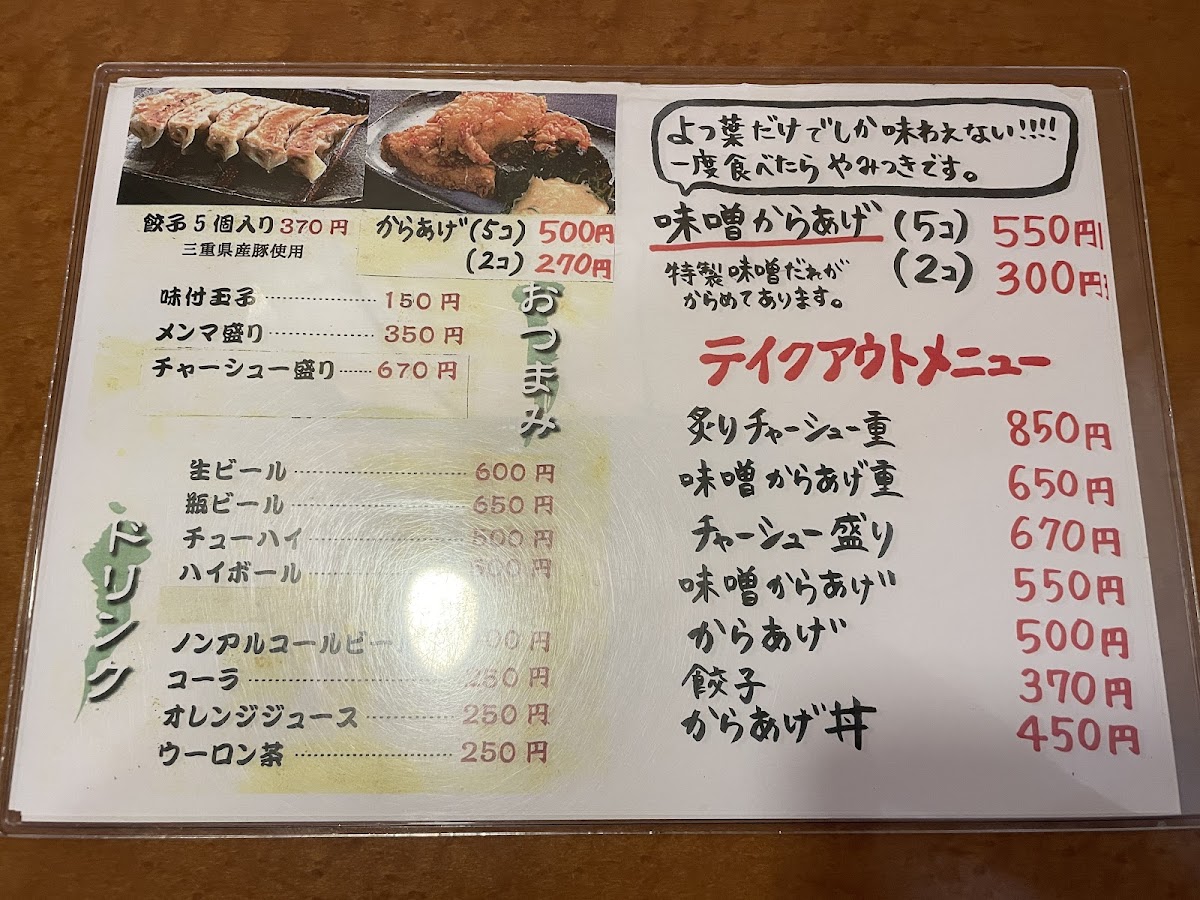 餃子5個入り 370円
三重県産豚使用
からあげ(5コ) 500円
(2コ) 270円
おつまみ
味付玉子 150円
メンマ盛り 350円
チャーシュー盛り 670円
ドリンク
生ビール 600円
瓶ビール 650円
チューハイ 500円
ハイボール 500円
ノンアルコールビール 00円
コーラ 250円
オレンジジュース 250円
ウーロン茶 250円
よつ葉だけでしか味わえない!!!!
一度食べたらやみつきです。
味噌からあげ(5コ) 550円
(2コ) 300円
特製味噌だれが
からめてあります。
テイクアウトメニュー
炙りチャーシュー重 850円
味噌からあげ重 650円
チャーシュー盛り 670円
味噌からあげ 550円
からあげ 500円
餃子 370円
からあげ丼 450円